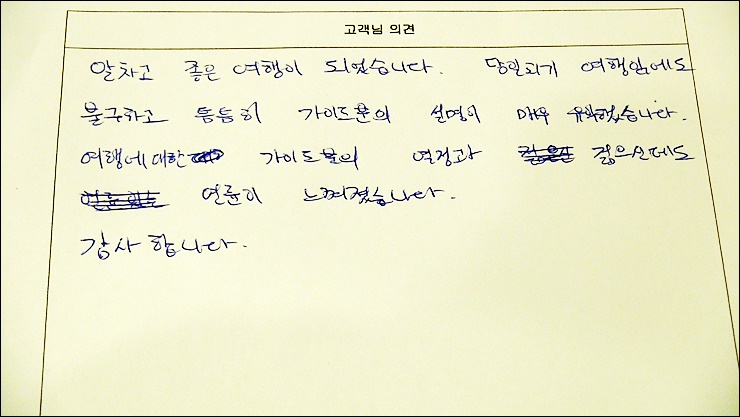 고객님 의견
알차고 좋은 여행이 되었습니다. 당일치기 여행임에도
불구하고 틈틈히 가이드분의 설명이 매우 유익했습니다.
여행에 대한 가이드분의 열정과 젊으신데도
연륜이 느껴졌습니다.
감사합니다.